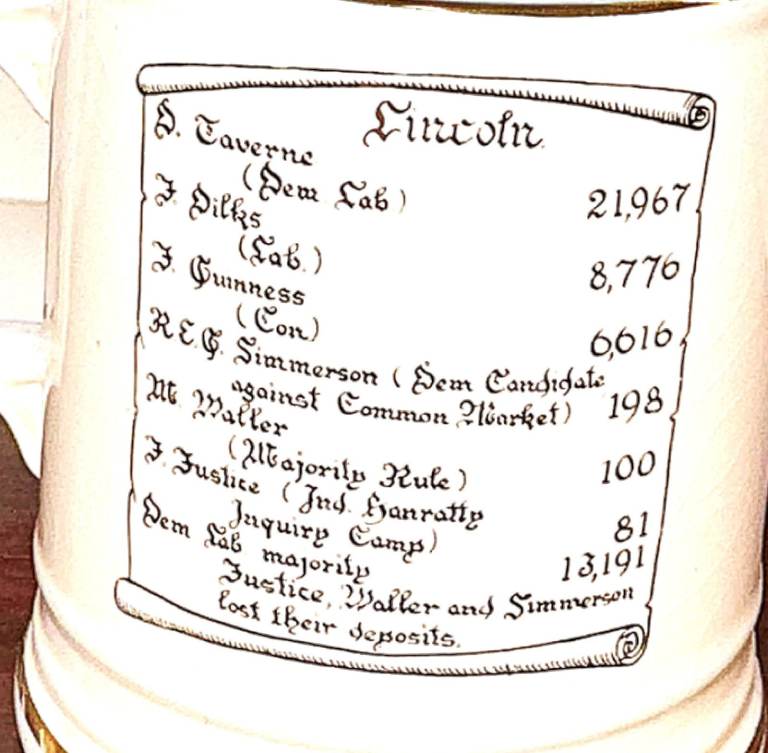 Lincoln.
D. Taverne
(Dem Lab) 21,967
J. Dilks
(Lab.) 8,776
J. Guinness
(Con) 6,616
R.E.G. Simmerson (Dem Candidate
against Common Market) 198
M. Waller
(Majority Rule) 100
J. Justice (Ind. Hanratty
Inquiry Camp) 81
Dem Lab majority 13,191
Justice, Waller and Simmerson
lost their deposits.